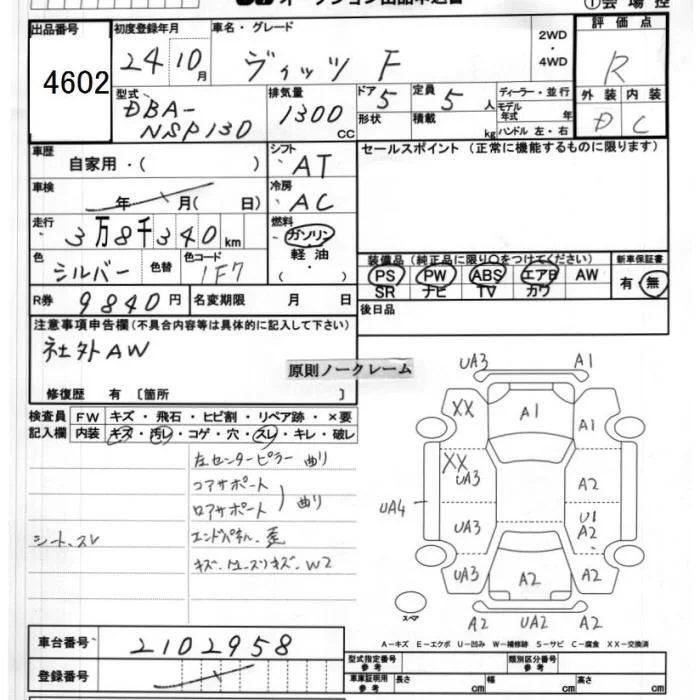 出品番号 初度登録年月 車名・グレード 2WD・4WD 評価点
4602 24 10月 ヴィッツ F R
型式 排気量 ドア 定員 ディーラー・並行 外装 内装
DBA-NSP130 1300 CC 5 5人 モデル年式 年 D C
形状 積載 kg ハンドル 左・右
車歴 自家用・( ) シフト AT セールスポイント (正常に機能するものに限ります)
車検 年 月( 日) 冷房 AC
走行 3万8千340km 燃料 ガソリン
色 シルバー 色替 色コード 1F7 軽油 ( ・ )
装備品 (純正品に限り○をつけてください) 新車保証書
PS PW ABS エアB AW 有・無
SR ナビ TV カワ
R券 9840円 名変期限 月 日 後日品
注意事項申告欄(不具合内容等は具体的に記入して下さい)
社外AW
原則ノークレーム
修復歴 有 [箇所 ]
検査員記入欄 FW キズ・飛石・ヒビ割・リペア跡・×要
内装 キズ・汚レ・コゲ・穴・スレ・キレ・破レ
左センターピラー 曲り
コアサポート
ロアサポート 曲り
シート、スレ エンドパネル、歪
W2
UA3 A1
XX A1 A1
XX UA3 A2
UA4 UA3 U1 A2
UA3 A2 A2
スペア A2 UA2 A2
A-キズ E-エクボ U-凹み W-補修跡 S-サビ C-腐食 XX-交換済
車台番号 2102958
登録番号
型式指定番号 参考 類別区分番号 参考
車庫証明用 参考 長さ cm 幅 cm 高さ cm